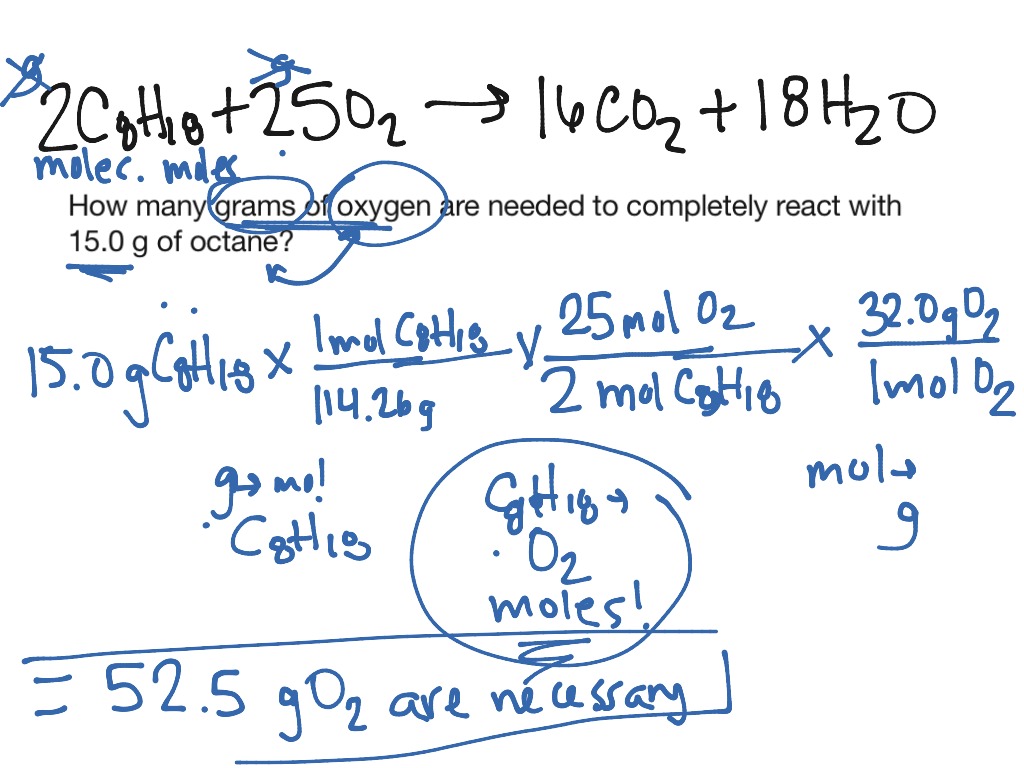 g g
2C8H18 + 25O2 → 16CO2 + 18H2O
molec. moles
How many grams of oxygen are needed to completely react with
15.0 g of octane?
15.0 g C8H18 x 1 mol C8H18 / 114.26 g x 25 mol O2 / 2 mol C8H18 x 32.0 g O2 / 1 mol O2
g → mol
C8H18
C8H18 →
O2
moles!
mol →
g
= 52.5 g O2 are necessary